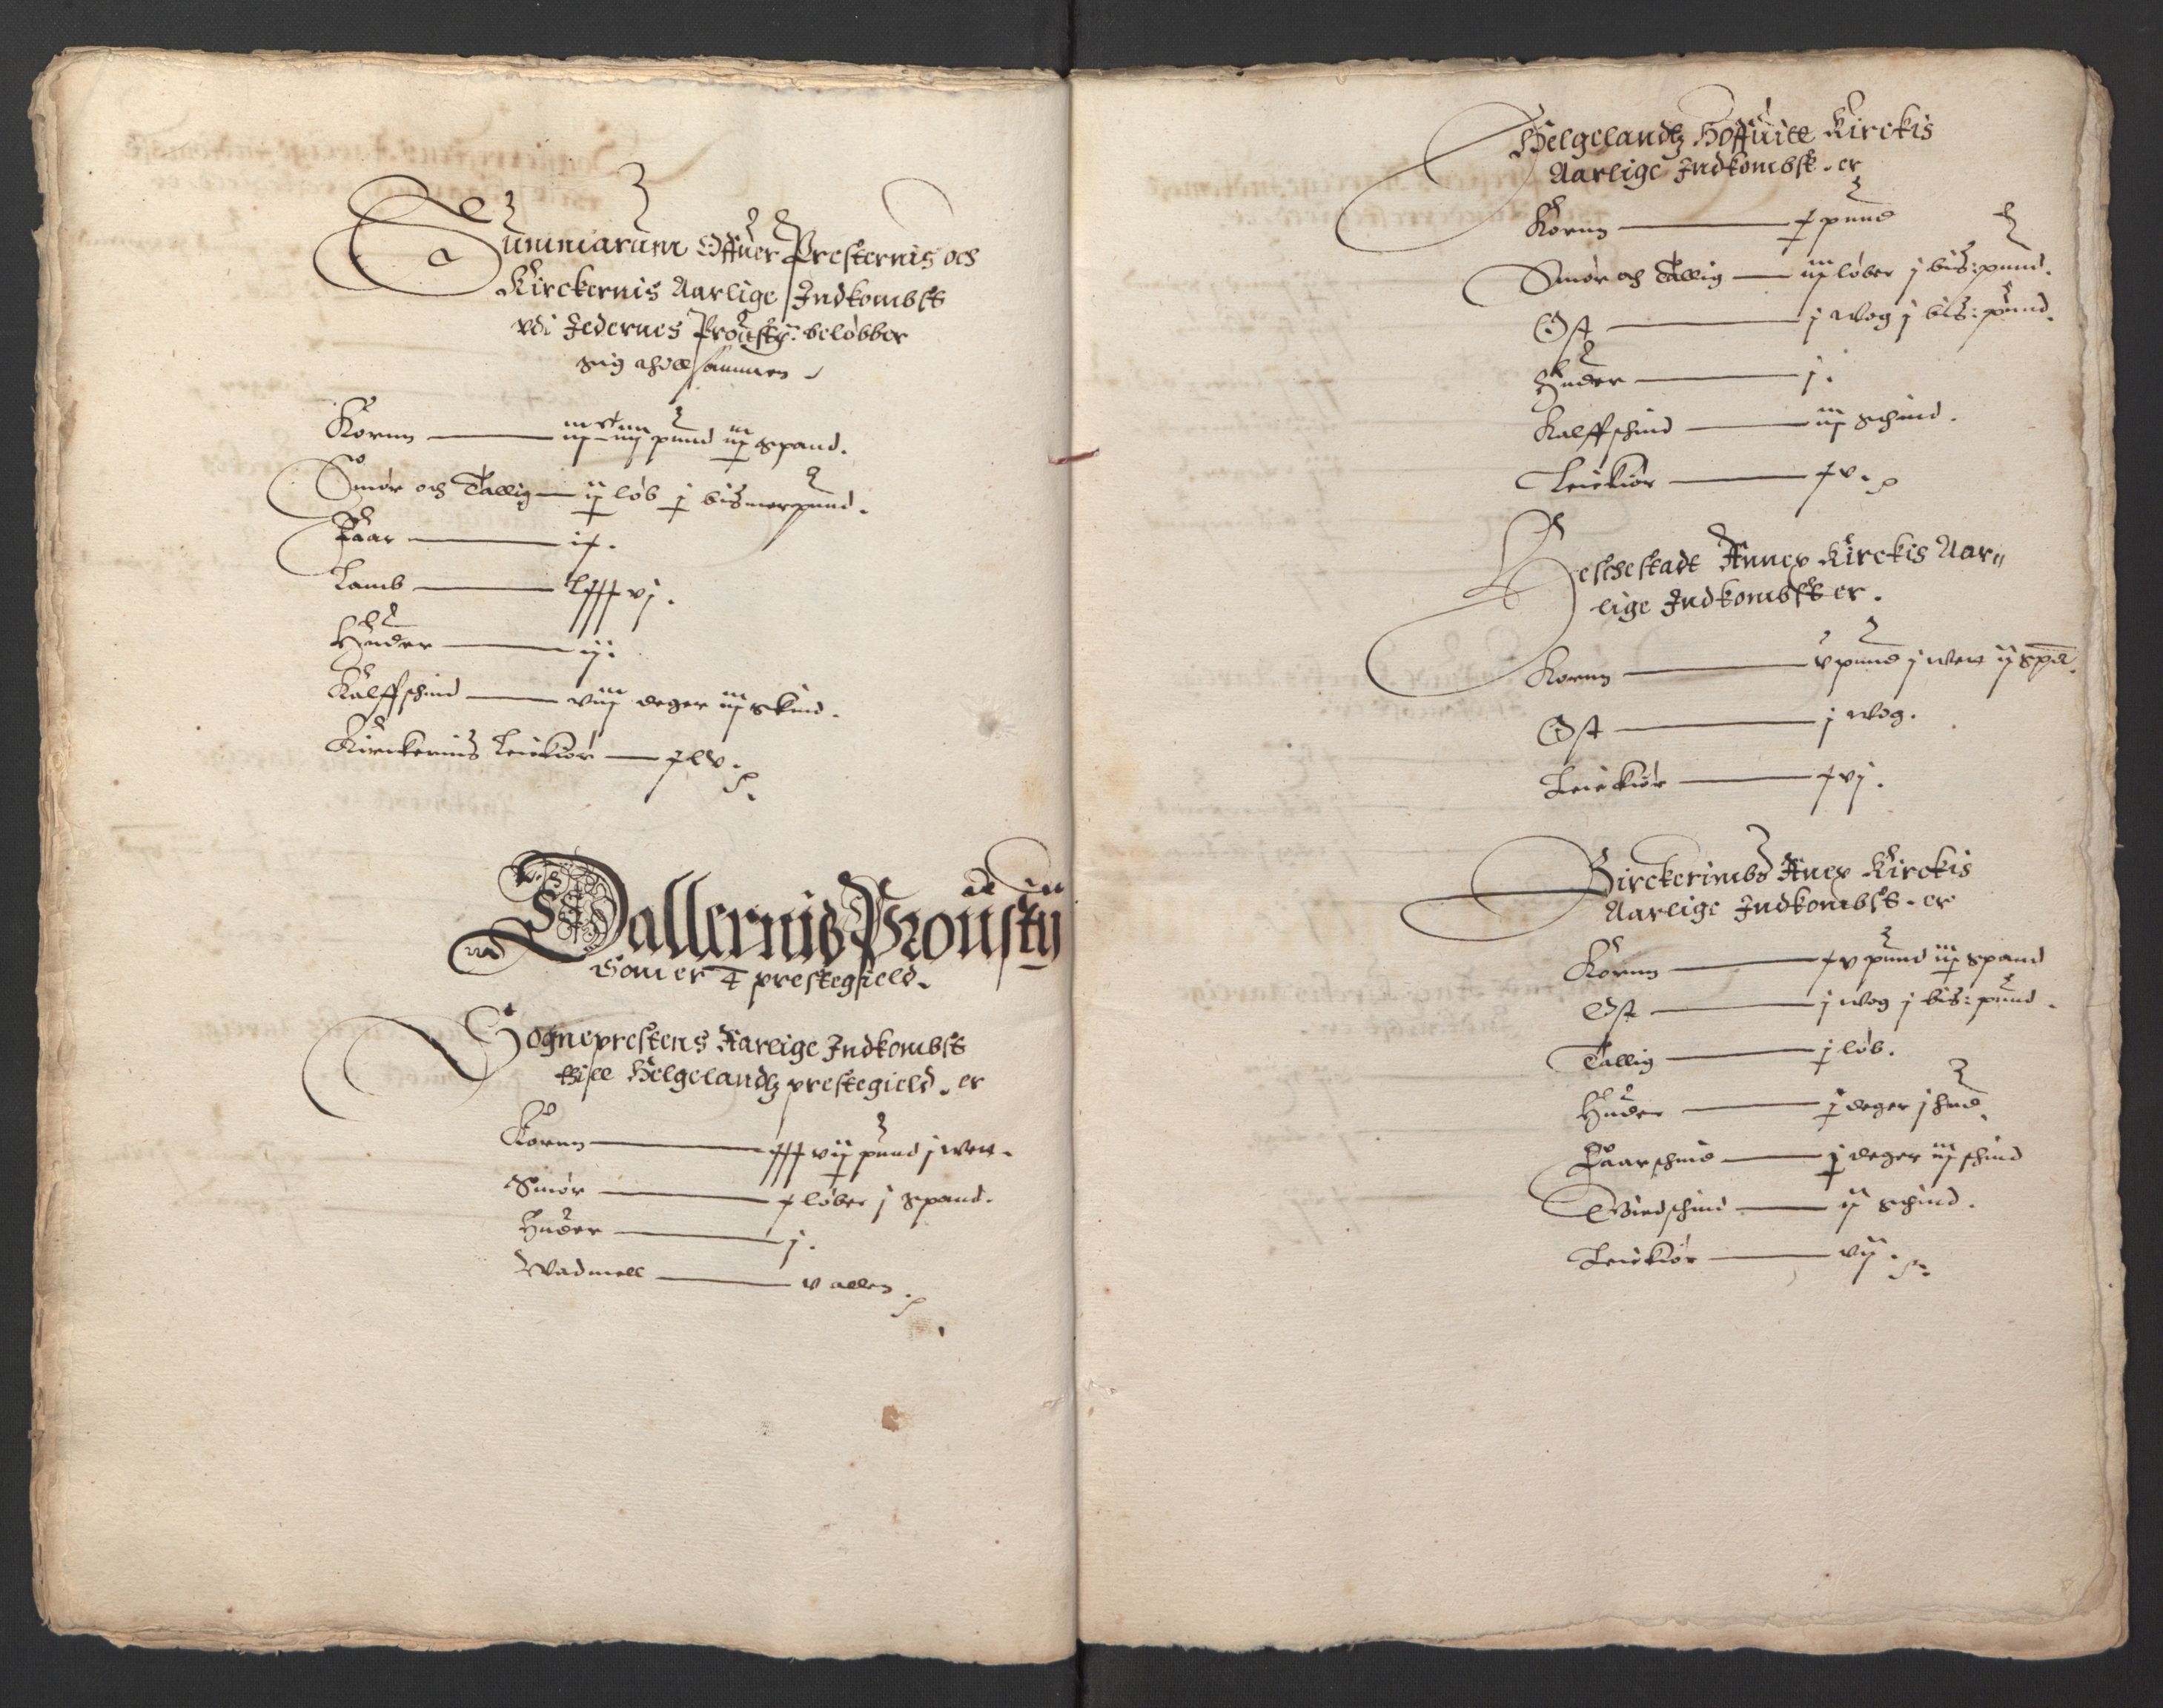 Summarum Offuer Presternis och
Kirckernis Aarlige Indkombst
vdi Jedernes Proustij beløbber
sig thill sammen
Kornn — pund iiij spand.
Smør och Tallig — ij løb j bismerpund.
Faar — ix.
Lamb — lxxxvj.
Huder — ij.
Kalffschind — viij deger iiij skind.
Kirckernis Leiekiør — xlv.
Dallernis Proustij
Som er 4 prestegield.
Sogneprestens Aarlige Indkombst
thill Helgelandtz prestegield. er
Kornn — xxxvij pund j wett.
Smør — x løber j spand.
Huder — j.
Wadmell — v allen.
Helgelandtz Hoffuitt Kirckis
Aarlige Indkombst. er
Kornn — x pund
Smør och Tallig — iij løber j bis: pund.
Ost — j wog j bis: pund.
Huder — j.
Kalffschind — iij schind.
Leiekiør — xv.
Heschestadt Annex Kirckis Aar„
lige Indkombst er.
Kornn — v pund j wett ij spd.
Ost — j wog.
Leiekiør — xvj.
Birckerimbs Anex Kirckis
Aarlige Indkombst. er
Kornn — xv pund iij spand
Ost — j wog j bis: pund.
Tallig — j løb.
Huder — j deger j hud.
Faarschind — j deger iij schind
Giedschind — ij schind.
Leiekiør — vij.